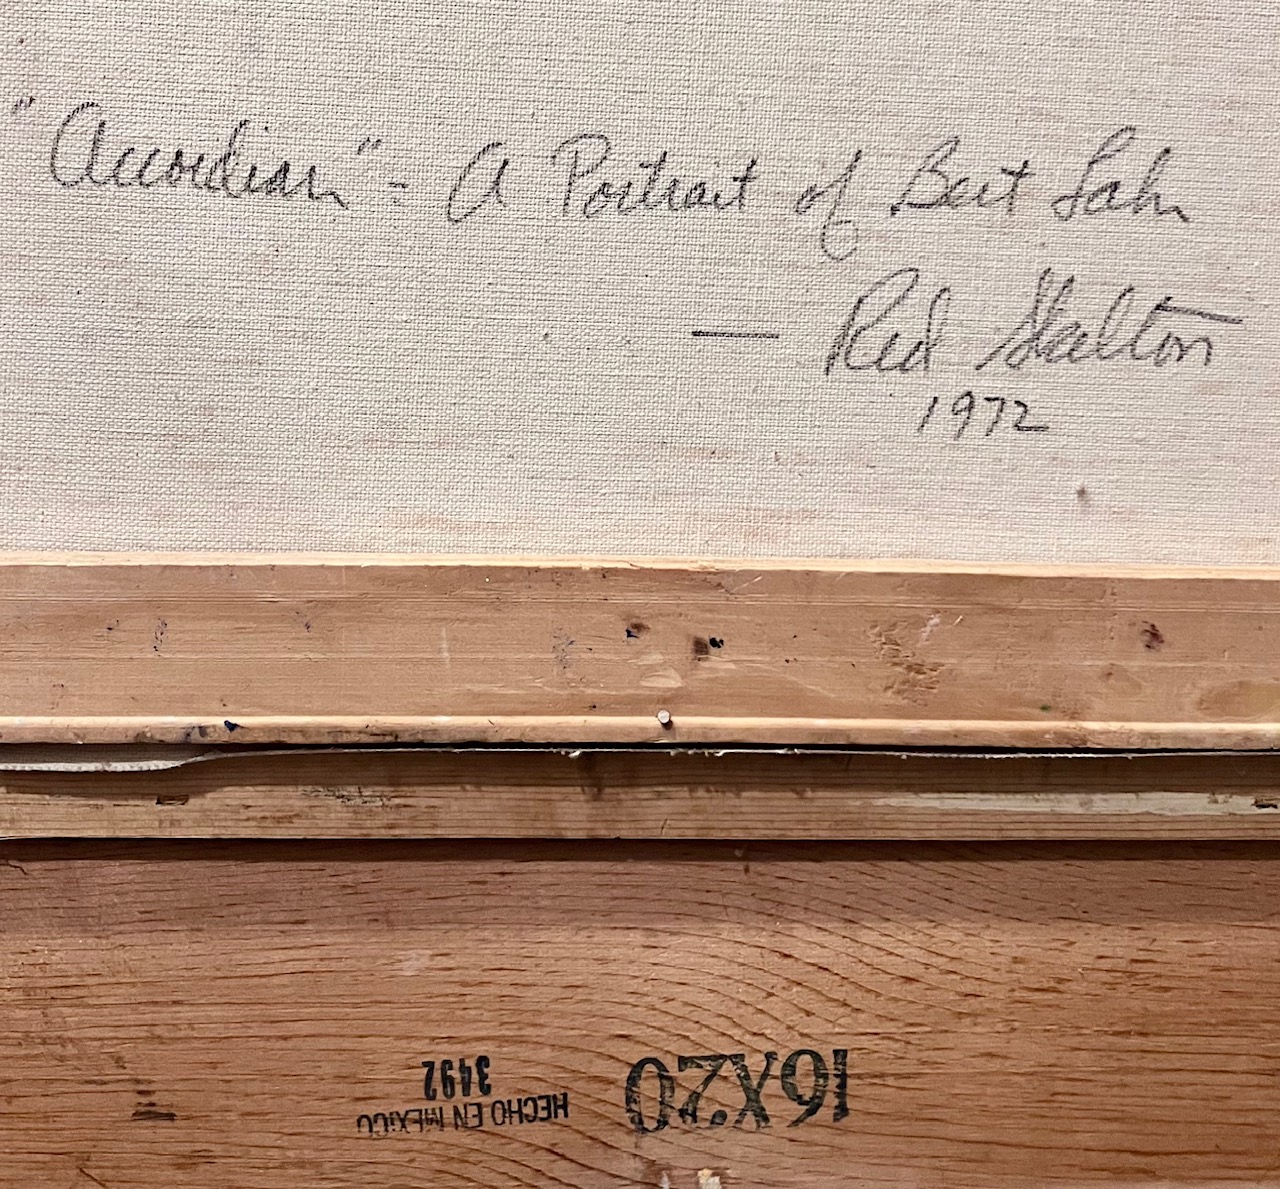 "Accordian" - A Portrait of Bert Lahr
— Red Skelton
1972
16X20
HECHO EN MEXICO
3492